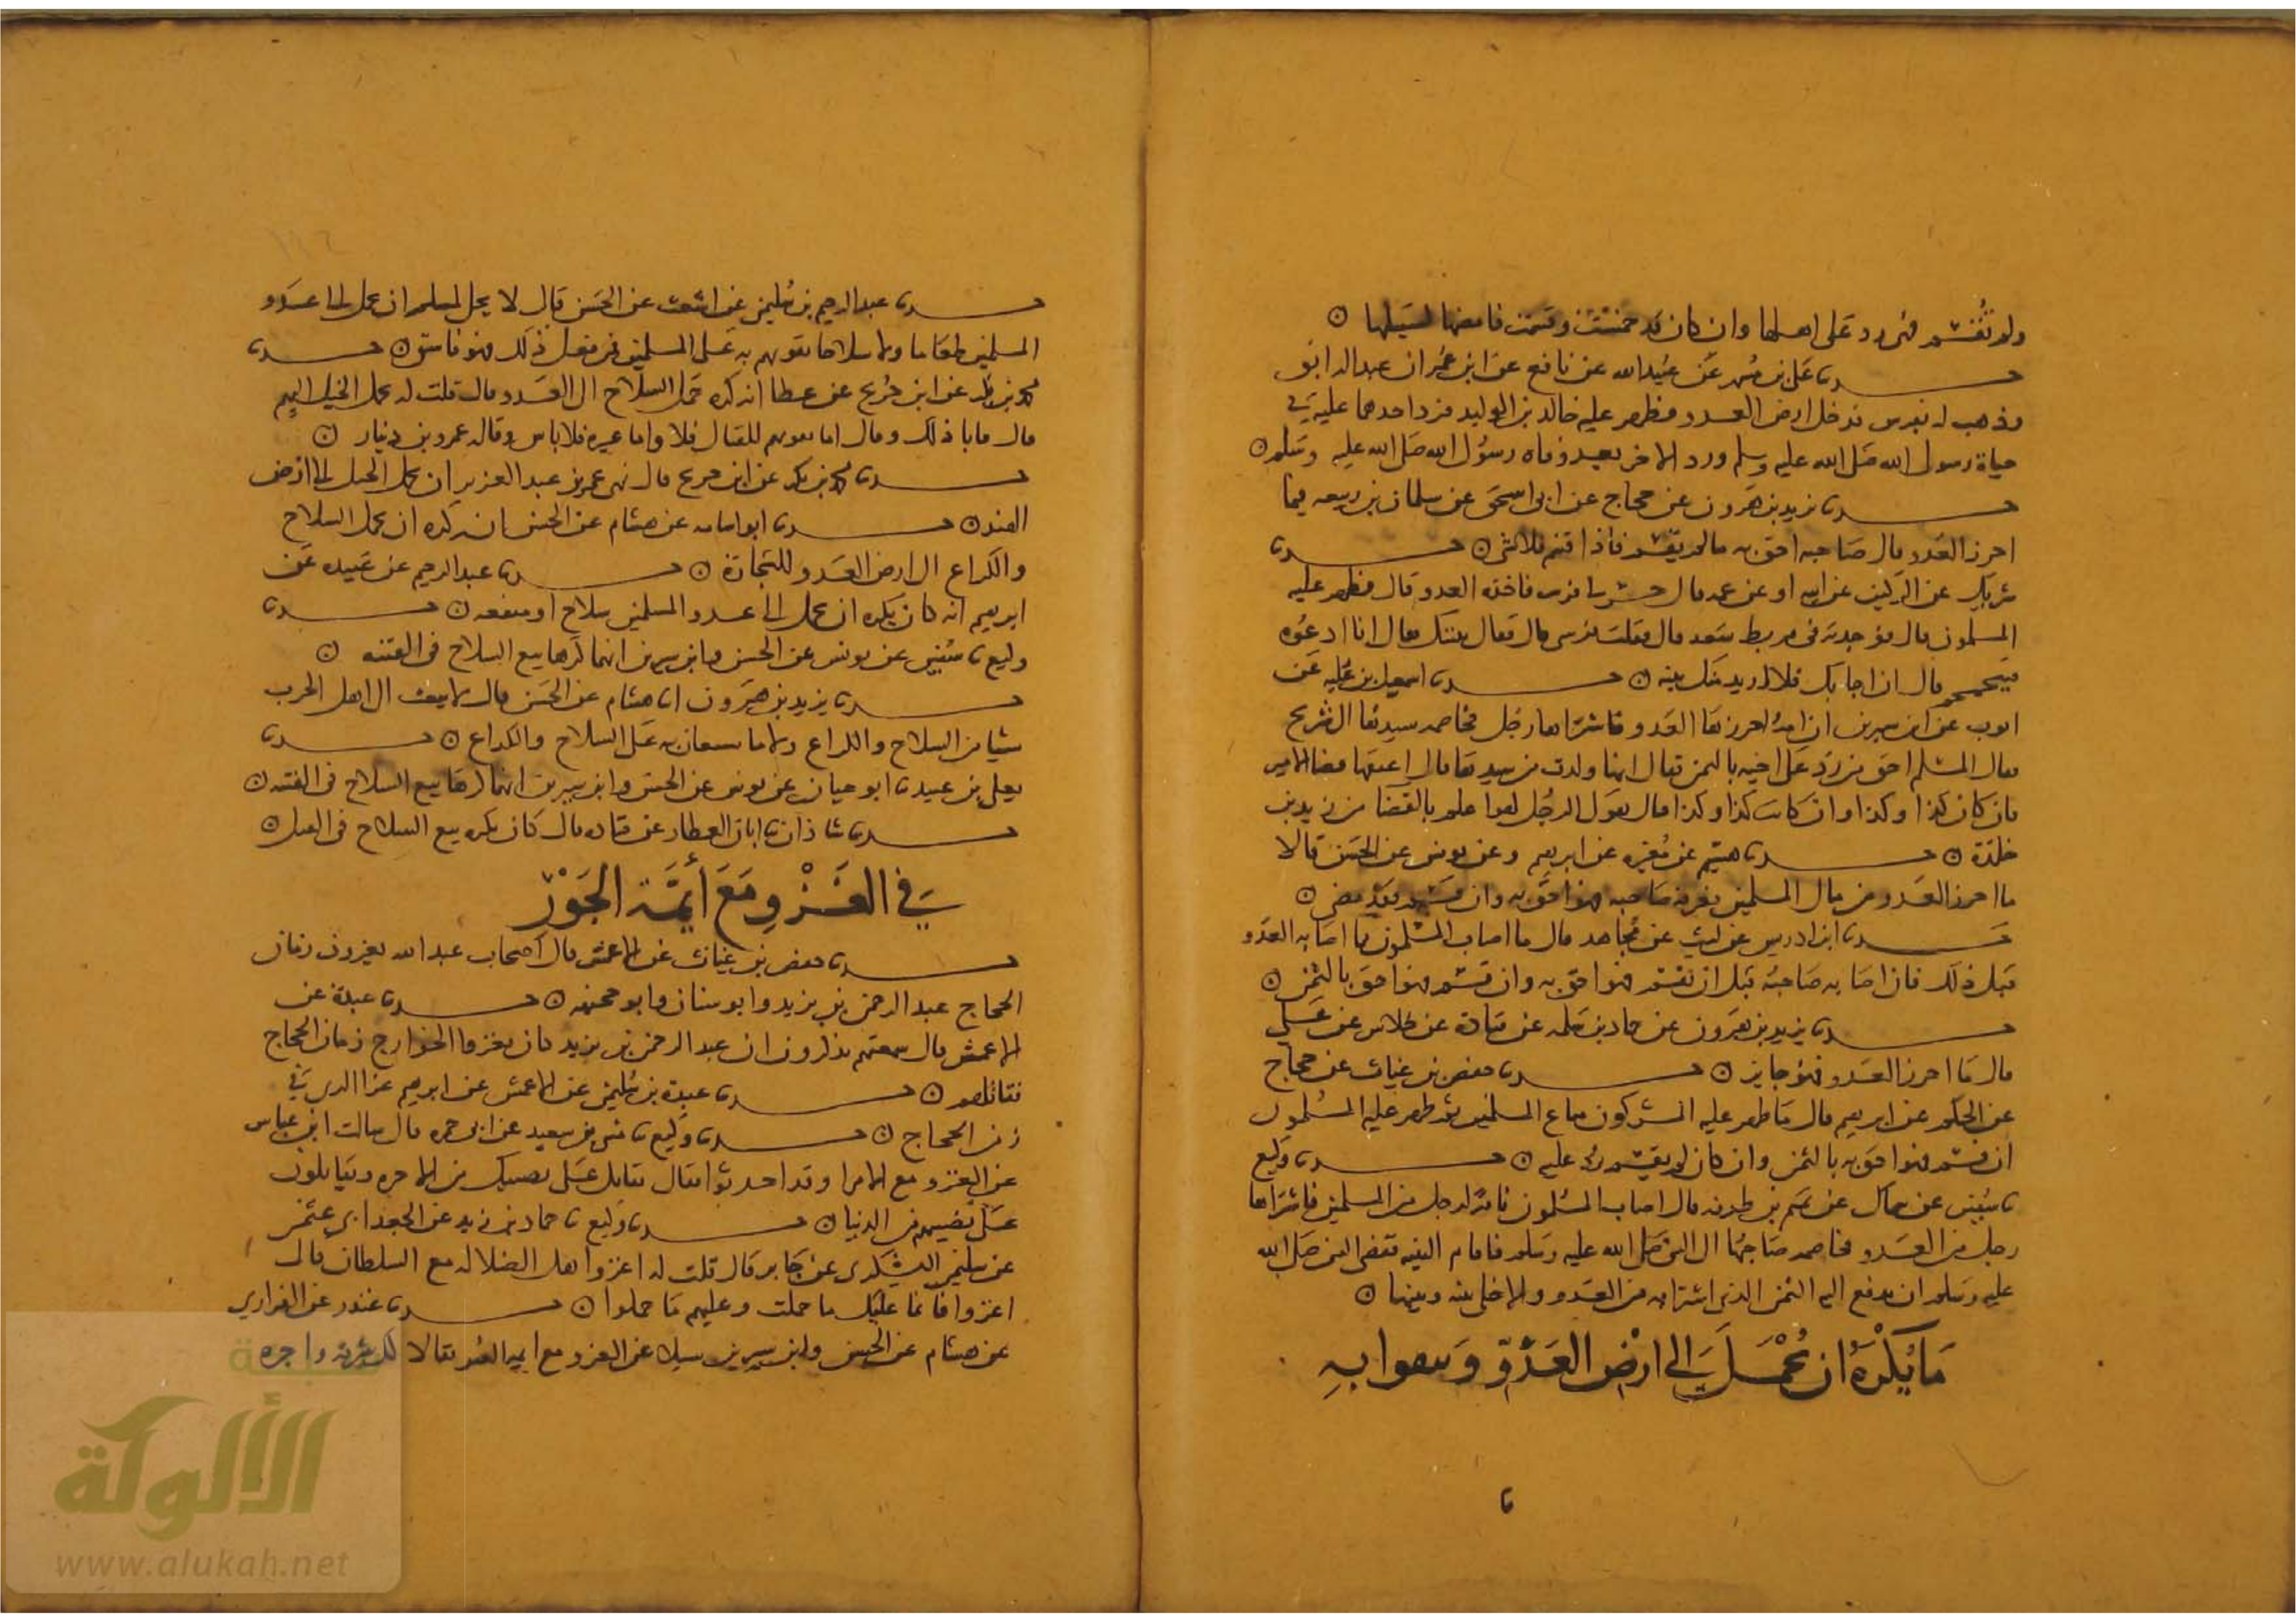 ولم تقسم فهى رد على اهلها وان كان قد خمست وقسمت فامضها لسبيلها ن
حدثنا على بن مسهر عن عبيد الله عن نافع عن ابن عمر ان عبدا له ابق
وذهب له بفرس فدخل ارض العدو فظهر عليه خالد بن الوليد فرد احدهما عليه فى
حياة رسول الله صلى الله عليه وسلم ورد الاخر بعد وفاه رسول الله صلى الله عليه وسلم ن
حدثنا يزيد بن هرون عن حجاج عن ابى اسحق عن سلمان بن ربيعه فيما
احرز العدو قال صاحبه احق به مالم يقسم فاذا قسم فلا شى ن حدثنا
شريك عن الركين عن ابيه او عن عمه قال حسر لى فرس فاخذه العدو قال فظهر عليه
المسلمون قال فوجدته فى مربط سعد قال فقلت فرسى قال فقال بينتك فقال انا ادعوه
فيحمحم قال ان اجابك فلا اريد منك بينه ن حدثنا اسمعيل بن علية عن
ايوب عن ابن سيرين ان امة احرزها العدو فاشتراها رجل فخاصمه سيدها الى شريح
فقال المسلم احق من رد على اخيه بالثمن فقال انها ولدت من سيدها قال اعتقها قضا الامير
فان كان كذا وكذا وان كانت كذا وكذا قال يقول الرجل لهوا علم بالقضا من زيد بن
خلدة ن حدثنا هشيم عن مغيره عن ابرهيم وعن يونس عن الحسن قالا
ما احرز العدو من مال المسلمين فعرفه صاحبه فهو احق به وان قسم فقد مضى ن
حدثنا ابن ادريس عن ليث عن مجاهد قال ما اصاب المسلمون مما اصابه العدو
قبل ذلك فان اصابه صاحبه قبل ان تقسم فهو احق به وان قسم فهو احق بالثمن ن
حدثنا يزيد بن هرون عن حماد بن سلمه عن قتادة عن خلاس عن على
قال ما احرز العدو فهو جايز ن حدثنا حفص بن غياث عن حجاج
عن الحكم عن ابرهيم قال ما ظهر عليه المشركون من متاع المسلمين ثم ظهر عليه المسلمون
ان قسم فهو احق به بالثمن وان كان لم يقسم رد عليه ن حدثنا وكيع
نا سفين عن سماك عن تميم بن طرفه قال اصاب المسلمون ناقة لرجل من المسلمين فاشتراها
رجل من العدو فخاصمه صاحبها الى النبى صلى الله عليه وسلم فاقام البينه فقضى النبى صلى الله
عليه وسلم ان يدفع اليه الثمن الذى اشترا به من العدو والا خلى بينه وبينها ن
ما يكره ان يحمل الى ارض العدو وينتفعوا به
نا
حدثنا عبد الرحيم بن سليمن عن اشعث عن الحسن قال لا يحل لمسلم ان يحمل الى عدو
المسلمين طعاما ولا سلاحا يقويهم به على المسلمين فمن فعل ذلك فهو فاسق ن حدثنا
محمد بن بكر عن ابن جريج عن عطا انه كره حمل السلاح الى العدو قال قلت له يحمل الخيل اليهم
قال فابا ذلك وقال اما يقويهم للقتال فلا واما غيره فلا باس وقاله عمرو بن دينار ن
حدثنا محمد بن بكر عن ابن جريج قال نهى عمر بن عبد العزيز ان يحمل الخيل الى ارض
الهند ن حدثنا ابو اسامه عن هشام عن الحسن انه كره ان يحمل السلاح
والكراع الى ارض العدو للتجارة ن حدثنا عبد الرحيم عن عبيده عن
ابرهيم انه كان يكره ان يحمل الى عدو المسلمين سلاح او منفعه ن حدثنا
وكيع نا سفين عن يونس عن الحسن وابن سيرين انهما كرها بيع السلاح فى الفتنه ن
حدثنا يزيد بن هرون انا هشام عن الحسن قال لا يبعث الى اهل الحرب
شيا من السلاح والكراع ولا ما يستعان به على السلاح والكراع ن حدثنا
يعلى بن عبيد نا ابو حيان عن يونس عن الحسن وابن سيرين انهما كرها بيع السلاح فى الفتنه ن
حدثنا شاذان نا ابان العطار عن قتاده قال كان يكره بيع السلاح فى القتال ن
فى الغزو مع أيمة الجور
حدثنا حفص بن غياث عن الاعمش قال كان اصحاب عبد الله يغزون زمان
الحجاج عبد الرحمن بن يزيد وابو سنان وابو جحيفه ن حدثنا عبدة عن
الاعمش قال سمعتهم يذكرون ان عبد الرحمن بن يزيد كان يغزوا الخوارج زمان الحجاج
يقاتلهم ن حدثنا عبدة بن سليمن عن الاعمش عن ابرهيم غزا الرى فى
زمن الحجاج ن حدثنا وكيع نا مثنى بن سعيد عن ابى جمره قال سالت ابن عباس
عن الغزو مع الامرا وقد احدثوا فقال تقاتل على نصيبك من الاخره ويقاتلون
على نصيبهم من الدنيا ن حدثنا وكيع نا حماد بن زيد عن الجعد ابى عثمن
عن سليمن اليشكرى عن جابر قال قلت له اغزوا اهل الضلاله مع السلطان قال
اغزوا فانما عليك ما حملت وعليهم ما حملوا ن حدثنا غندر عن الفزارى
عن هشام عن الحسن وابن سيرين سيلا عن الغزو مع ايمه السو فقالا لك شرفه واجره
الألوكة
www.alukah.net